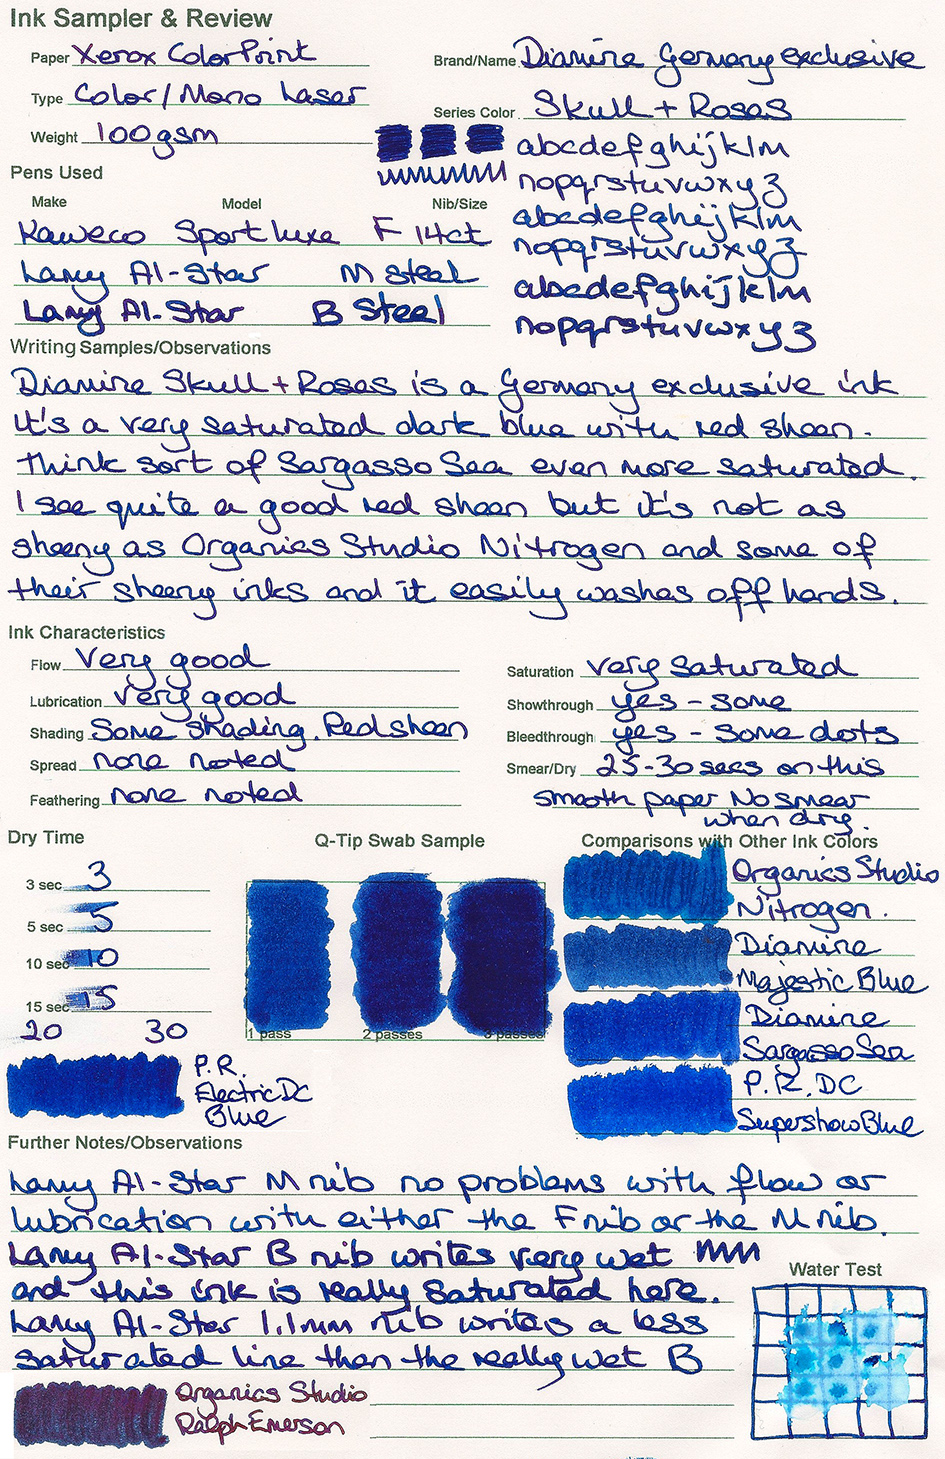 Ink Sampler & Review
Paper Xerox ColorPrint
Brand/Name Diamine Germany exclusive
Type Color/Mono Laser
Series Color Skull + Roses
Weight 100gsm
abcdefghijklm
nopqrstuvwxyz
abcdefghijklm
nopqrstuvwxyz
abcdefghijklm
nopqrstuvwxyz
Pens Used
Make Model Nib/Size
Kaweco Sport luxe F 14ct
Lamy Al-Star M steel
Lamy Al-Star B Steel
Writing Samples/Observations
Diamine Skull + Roses is a Germany exclusive ink
It's a very saturated dark blue with red sheen.
Think sort of Sargasso Sea even more saturated.
I see quite a good red sheen but it's not as
sheeny as Organics Studio Nitrogen and some of
their sheeny inks and it easily washes off hands.
Ink Characteristics
Flow Very good
Lubrication very good
Shading Some shading. Red sheen
Spread none noted
Feathering none noted
Saturation very saturated
Showthrough yes - some
Bleedthrough yes - some dots
Smear/Dry 25-30 secs on this
smooth paper No smear
when dry.
Dry Time
3 sec 3
5 sec 5
10 sec 10
15 sec 15
20 30
Q-Tip Swab Sample
1 pass 2 passes 3 passes
Comparisons with Other Ink Colors
Organics Studio
Nitrogen.
Diamine
Majestic Blue
Diamine
Sargasso Sea
P.R. DC
Supershow Blue
P.R.
Electric DC
Blue
Further Notes/Observations
Lamy Al-Star M nib no problems with flow or
lubrication with either the F nib or the M nib.
Lamy Al-Star B nib writes very wet
and this ink is really saturated here.
Lamy Al-Star 1.1mm nib writes a less
saturated line then the really wet B
Water Test
Organics Studio
Ralph Emerson